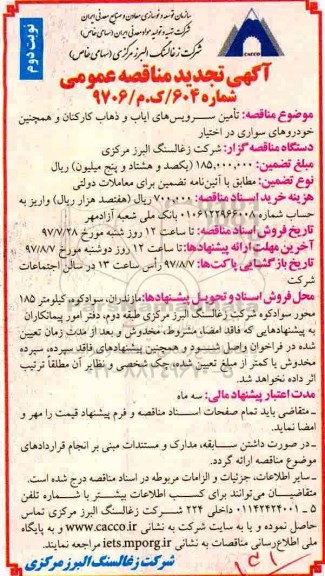 سازمان توسعه و نوسازی معادن و صنایع معدنی ایران
شرکت تهیه و تولید مواد معدنی ایران (سهامی خاص)
شرکت زغالسنگ البرز مرکزی (سهامی خاص)
نوبت دوم
CACCO
آگهی تجدید مناقصه عمومی
شماره ۶۰۴/ک.م/۹۷۰۶
موضوع مناقصه: تأمین سرویس‌های ایاب و ذهاب کارکنان و همچنین
خودروهای سواری در اختیار
دستگاه مناقصه گزار: شرکت زغالسنگ البرز مرکزی
مبلغ تضمین: ۱۸۵,۰۰۰,۰۰۰ (یکصد و هشتاد و پنج میلیون) ریال
نوع تضمین: مطابق با آئین‌نامه تضمین برای معاملات دولتی
هزینه خرید اسناد مناقصه: ۷۰۰,۰۰۰ ریال (هفتصد هزار ریال) واریز به
حساب شماره ۰۱۰۶۱۲۲۹۶۶۰۰۸ بانک ملی شعبه آزادمهر
تاریخ فروش اسناد مناقصه: تا ساعت ۱۲ روز شنبه مورخ ۹۷/۷/۲۸
آخرین مهلت ارائه پیشنهادها: تا ساعت ۱۲ روز دوشنبه مورخ ۹۷/۸/۷
تاریخ بازگشایی پاکت‌ها: ۹۷/۸/۷ رأس ساعت ۱۳ در سالن اجتماعات
شرکت
محل فروش اسناد و تحویل پیشنهادها: مازندران، سوادکوه، کیلومتر ۱۸۵
محور سوادکوه شرکت زغالسنگ البرز مرکزی طبقه دوم، دفتر امور پیمانکاران
به پیشنهادهایی که فاقد امضا، مشروط، مخدوش و بعد از مدت زمان تعیین
شده در فراخوان واصل شود و همچنین پیشنهادهای فاقد سپرده، سپرده
مخدوش یا کمتر از مبلغ تعیین شده، چک شخصی و نظایر آن مطلقا ترتیب
اثر داده نخواهد شد.
مدت اعتبار پیشنهاد مالی: سه ماه
ـ متقاضی باید تمام صفحات اسناد مناقصه و فرم پیشنهاد قیمت را مهر و
امضا نماید.
ـ در صورت داشتن سابقه، مدارک و مستندات مبنی بر انجام قراردادهای
موضوع مناقصه ارائه گردد.
ـ سایر اطلاعات، جزئیات و الزامات مربوطه در اسناد مناقصه درج شده است.
متقاضیان می‌توانند برای کسب اطلاعات بیشتر با شماره تلفن
۵ ـ ۰۱۱۴۲۴۲۴۰۰۱ داخلی ۲۲۴ شرکت زغالسنگ البرز مرکزی تماس
حاصل نموده و یا به سایت شرکت به نشانی www.cacco.ir و به پایگاه
ملی اطلاع‌رسانی مناقصات به نشانی iets.mporg.ir مراجعه نمایند.
شرکت زغالسنگ البرز مرکزی